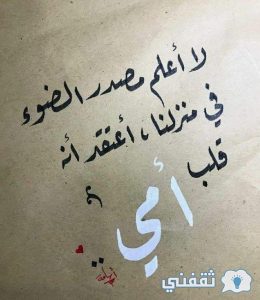 لا أعلم مصدر الضوء
في منزلنا، أعتقد أنه
قلب
أمي
..
ثقفني